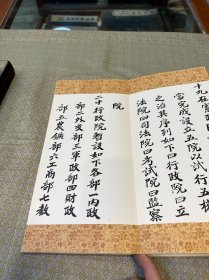 十九在憲政
當完成設立五院以試行五權
之治其序列如下曰行政院曰立
法院曰司法院曰考試院曰監察
院
二十行政院暫設如下各部一內政
部二外交部三軍政部四財政
部五農鑛部六工商部七教